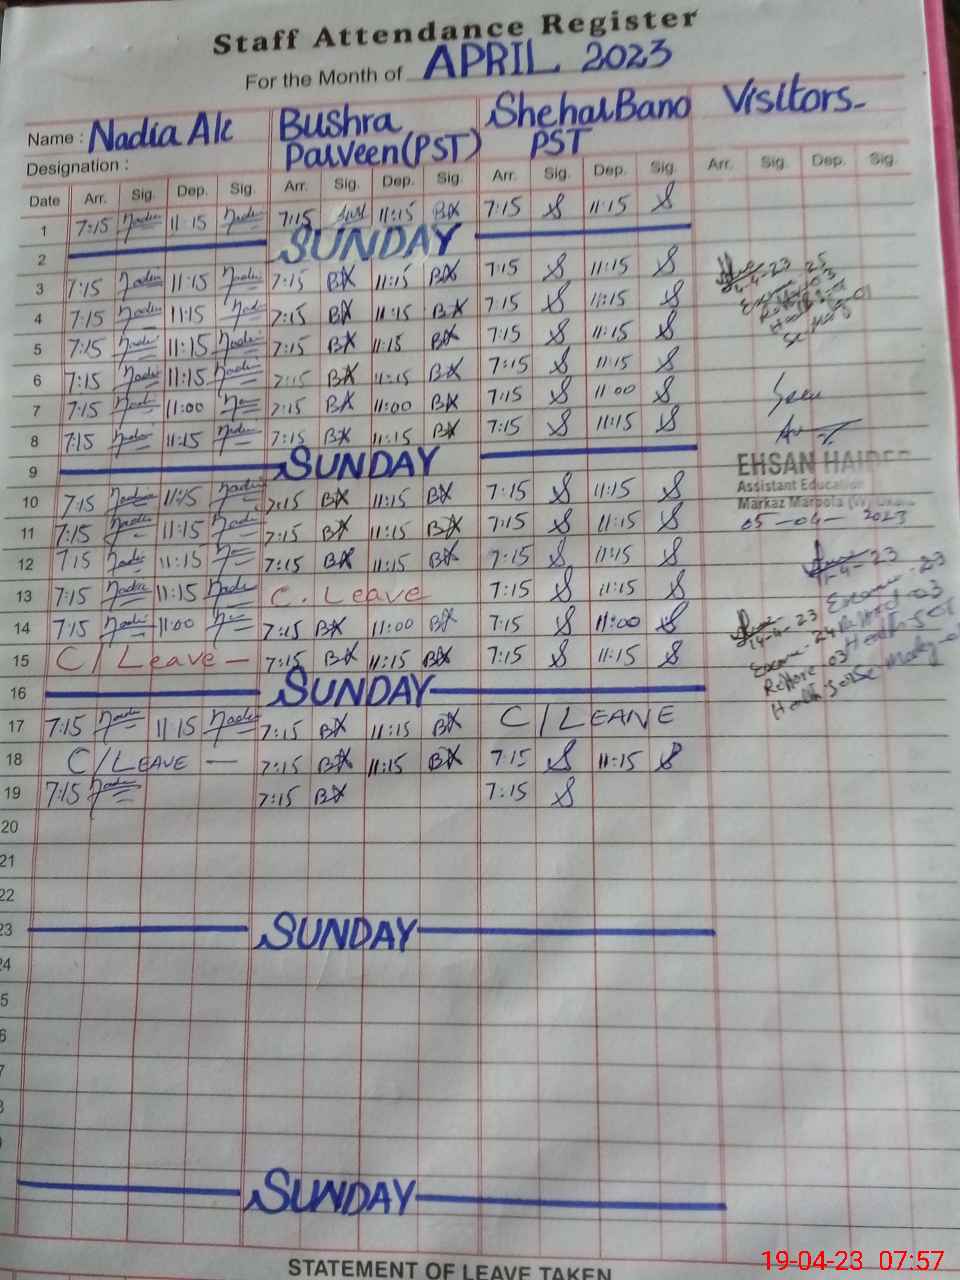 Staff Attendance Register
For the Month of APRIL 2023
Name : Nadia Ali Bushra Parveen (PST) Shehar Bano PST Visitors
Designation :
Date Arr. Sig. Dep. Sig. Arr. Sig. Dep. Sig. Arr. Sig. Dep. Sig. Arr. Sig. Dep. Sig.
1 7:15 Nadia 11:15 Nadia 7:15 11:15 BX 7:15 S 11:15 S
2 SUNDAY
3 7:15 Nadia 11:15 Nadia 7:15 BX 11:15 BX 7:15 S 11:15 S
4 7:15 Nadia 11:15 Nadia 7:15 BX 11:15 BX 7:15 S 11:15 S
5 7:15 Nadia 11:15 Nadia 7:15 BX 11:15 BX 7:15 S 11:15 S
6 7:15 Nadia 11:15 Nadia 7:15 BX 11:15 BX 7:15 S 11:15 S
7 7:15 Nadia 11:00 7:15 BX 11:00 BX 7:15 S 11 00 S
8 7:15 Nadia 11:15 Nadia 7:15 BX 11:15 BX 7:15 S 11:15 S
9 SUNDAY
EHSAN HAIDER
Assistant Education
Markaz Marpola
10 7:15 Nadia 11:15 Nadia 7:15 BX 11:15 BX 7:15 S 11:15 S
11 7:15 Nadia 11:15 Nadia 7:15 BX 11:15 BX 7:15 S 11:15 S 05-04-2023
12 7:15 Nadia 11:15 7:15 BX 11:15 BX 7:15 S 11:15 S
13 7:15 Nadia 11:15 Nadia C. Leave 7:15 S 11:15 S
14 7:15 Nadia 11:00 7:15 BX 11:00 BX 7:15 S 11:00 S 14-4-23
15 C/Leave - 7:15 BX 11:15 BX 7:15 S 11:15 S
16 SUNDAY
17 7:15 Nadia 11:15 Nadia 7:15 BX 11:15 BX C/LEAVE
18 C/LEAVE - 7:15 BX 11:15 BX 7:15 S 11:15 S
19 7:15 Nadia 7:15 BX 7:15 S
20
21
22
23 SUNDAY
24
5
6
7
8
SUNDAY
STATEMENT OF LEAVE TAKEN
19-04-23 07:57